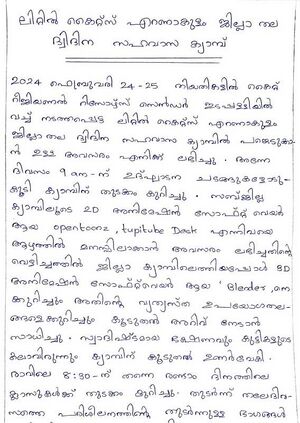 ലിറ്റിൽ കൈറ്റ്സ് എറണാകുളം ജില്ലാ തല
ദ്വിദിന സഹവാസ ക്യാമ്പ്
2024 ഫെബ്രുവരി 24-25 തിയതികളിൽ കൈറ്റ്
റീജിയണൽ റിസോഴ്സ് സെൻ്റർ ഇടപ്പള്ളിയിൽ
വച്ച് നടത്തപ്പെട്ട ലിറ്റിൽ കൈറ്റ്സ് എറണാകുളം
ജില്ലാ തല ദ്വിദിന സഹവാസ ക്യാമ്പിൽ പങ്കെടുക്കാ
ൻ ഉള്ള അവസരം എനിക്ക് ലഭിച്ചു. അന്നേ
ദിവസം 9 am-ന് ഉദ്ഘാടന ചടങ്ങുകളോടു
കൂടി ക്യാമ്പിന് തുടക്കം കുറിച്ചു. സബ്ജില്ല
ക്യാമ്പിലൂടെ 2D അനിമേഷൻ സോഫ്റ്റ് വെയർ
ആയ opentoonz, tupitube Desk എന്നിവയെ
ആഴത്തിൽ മനസ്സിലാക്കാൻ അവസരം ലഭിച്ചതിൻ്റെ
വെളിച്ചത്തിൽ ജില്ലാ ക്യാമ്പിലെത്തിയപ്പോൾ 3D
അനിമേഷൻ സോഫ്റ്റ് വെയർ ആയ 'Blender'നെ
ക്കുറിച്ചും അതിൻ്റെ വ്യത്യസ്ത ഉപയോഗതല
ങ്ങളെക്കുറിച്ചും കൂടുതൽ അറിവ് നേടാൻ
സാധിച്ചു. സ്വാദിഷ്ടമായ ഭക്ഷണവും കുട്ടികളുടെ
കലാവിരുന്നും ക്യാമ്പിന് കൂടുതൽ ഉണർവേകി.
രാവിലെ 8:30-ന് തന്നെ രണ്ടാം ദിനത്തിലെ
ക്ലാസുകൾക്ക് തുടക്കം കുറിച്ചു. തുടർന്ന് തലേദിവ
സത്തെ പരിശീലനത്തിൻ്റെ തുടർന്നുള്ള ഭാഗങ്ങൾ